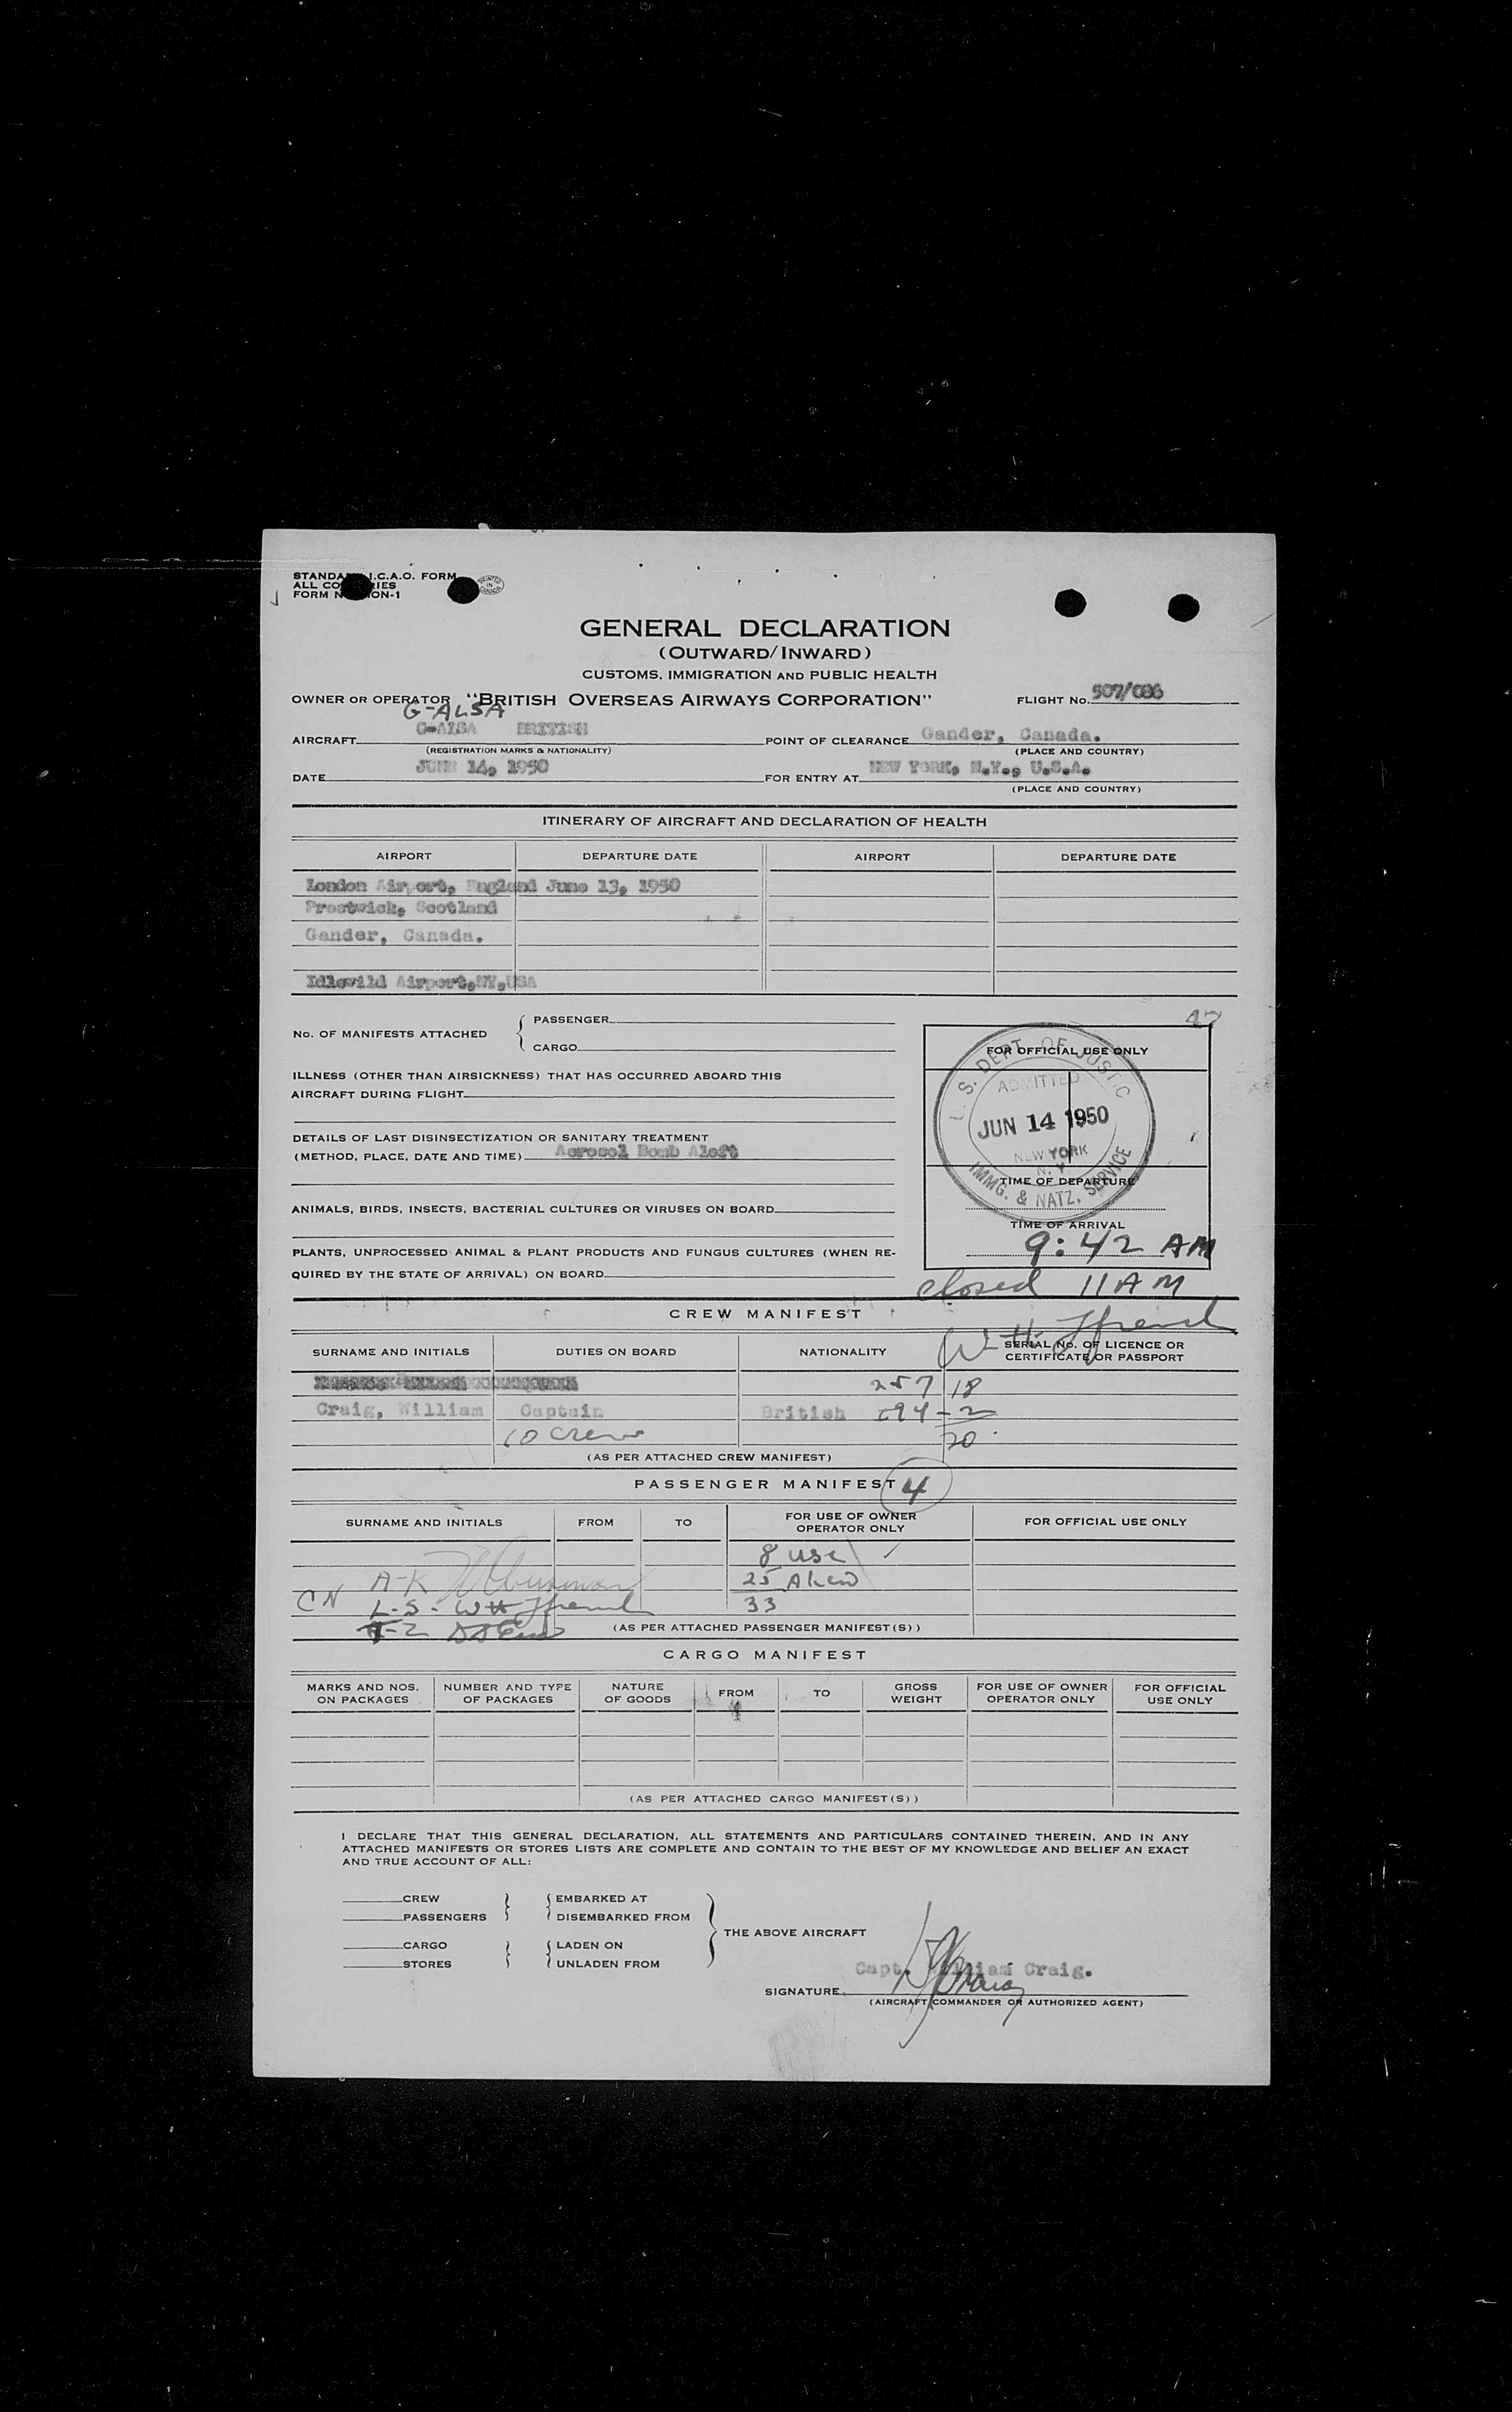 STANDA I.C.A.O. FORM
ALL CO RIES
FORM N ION-1
PRINTED IN CANADA
GENERAL DECLARATION
(OUTWARD/INWARD)
CUSTOMS, IMMIGRATION AND PUBLIC HEALTH
OWNER OR OPERATOR "BRITISH OVERSEAS AIRWAYS CORPORATION" FLIGHT NO. 507/086
G-ALSA
AIRCRAFT G-ALSA BRITISH POINT OF CLEARANCE Gander, Canada.
(REGISTRATION MARKS & NATIONALITY) (PLACE AND COUNTRY)
DATE JUNE 14, 1950 FOR ENTRY AT NEW YORK, N.Y., U.S.A.
(PLACE AND COUNTRY)
ITINERARY OF AIRCRAFT AND DECLARATION OF HEALTH
AIRPORT DEPARTURE DATE AIRPORT DEPARTURE DATE
London Airport, England June 13, 1950
Prestwick, Scotland
Gander, Canada.
Idlewild Airport,NY,USA
47
No. OF MANIFESTS ATTACHED { PASSENGER
CARGO
ILLNESS (OTHER THAN AIRSICKNESS) THAT HAS OCCURRED ABOARD THIS
AIRCRAFT DURING FLIGHT
DETAILS OF LAST DISINSECTIZATION OR SANITARY TREATMENT
(METHOD, PLACE, DATE AND TIME) Aerosol Bomb Aloft
ANIMALS, BIRDS, INSECTS, BACTERIAL CULTURES OR VIRUSES ON BOARD
PLANTS, UNPROCESSED ANIMAL & PLANT PRODUCTS AND FUNGUS CULTURES (WHEN RE-
QUIRED BY THE STATE OF ARRIVAL) ON BOARD
FOR OFFICIAL USE ONLY
U. S. DEPT. OF JUSTIC
ADMITTED
JUN 14 1950
NEW YORK
N. Y.
IMMG. & NATZ. SERVICE
TIME OF DEPARTURE
TIME OF ARRIVAL
9:42 AM
closed 11 AM
CREW MANIFEST
SURNAME AND INITIALS DUTIES ON BOARD NATIONALITY SERIAL No. OF LICENCE OR
CERTIFICATE OR PASSPORT
257 18
Craig, William Captain British 194 - 2
10 crew 20
(AS PER ATTACHED CREW MANIFEST)
PASSENGER MANIFEST 4
SURNAME AND INITIALS FROM TO FOR USE OF OWNER
OPERATOR ONLY FOR OFFICIAL USE ONLY
8 USC
A-K 25 Alien
CN L-S- WH 33
T-Z (AS PER ATTACHED PASSENGER MANIFEST(S))
CARGO MANIFEST
MARKS AND NOS.
ON PACKAGES NUMBER AND TYPE
OF PACKAGES NATURE
OF GOODS FROM TO GROSS
WEIGHT FOR USE OF OWNER
OPERATOR ONLY FOR OFFICIAL
USE ONLY
(AS PER ATTACHED CARGO MANIFEST(S))
I DECLARE THAT THIS GENERAL DECLARATION, ALL STATEMENTS AND PARTICULARS CONTAINED THEREIN, AND IN ANY
ATTACHED MANIFESTS OR STORES LISTS ARE COMPLETE AND CONTAIN TO THE BEST OF MY KNOWLEDGE AND BELIEF AN EXACT
AND TRUE ACCOUNT OF ALL:
CREW EMBARKED AT
PASSENGERS DISEMBARKED FROM
THE ABOVE AIRCRAFT
CARGO LADEN ON
STORES UNLADEN FROM
Capt. William Craig.
SIGNATURE
(AIRCRAFT COMMANDER OR AUTHORIZED AGENT)